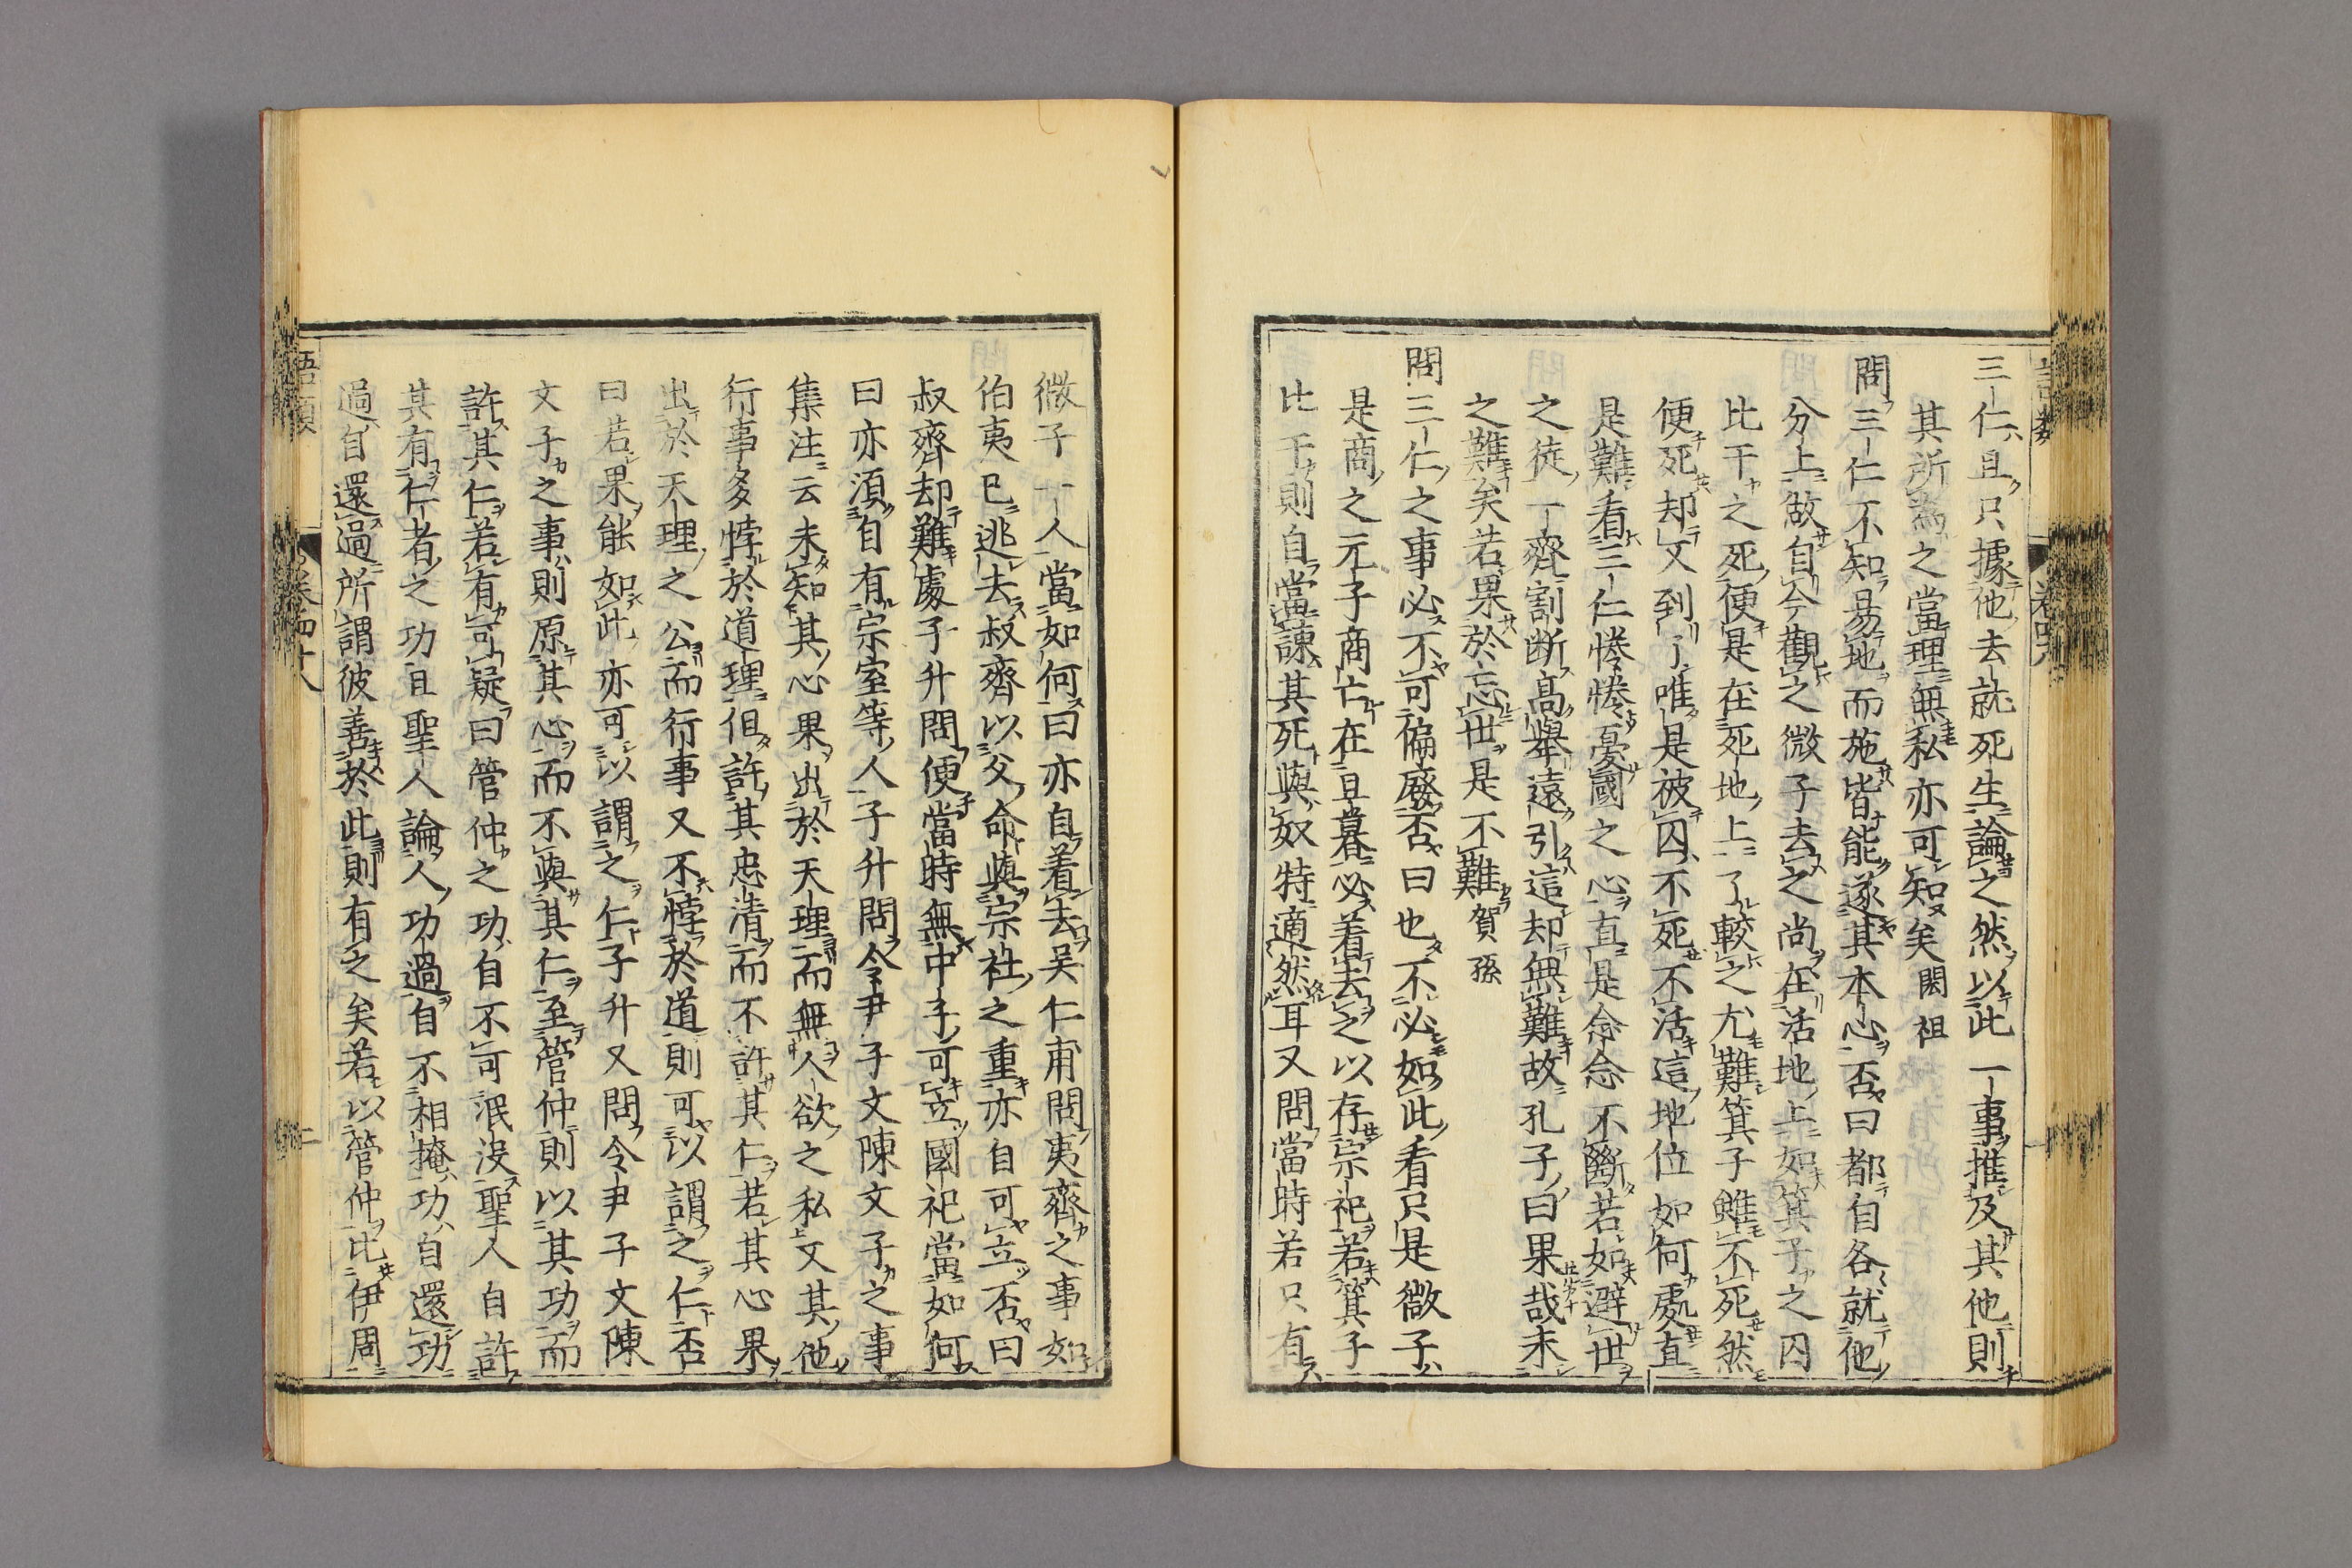 三仁且只據他去就死生論之然以此一事推及其他則
其所為之當理無私亦可知矣閎祖
問三仁不知易地而施皆能遂其本心否曰都自各就他
分上做自今觀之微子去之尚在活地上如箕子之囚
比干之死便是在死地上了較之尤難箕子雖不死然
便死却又到了唯是被囚不死不活這地位如何處直
是難看三仁惓惓憂國之心直是念念不斷若如避世
之徒一齊割断高舉遠引這却無難故孔子曰果哉末
之難矣若果於忘世是不難賀孫
問三仁之事必不可偏廢否曰也不必如此看只是微子
是商之元子商亡在旦暮必着去之以存宗祀若箕子
比干則自當諫其死與奴特適然耳又問當時若只有
微子一人當如何曰亦自着去吴仁甫問夷齊之事如
伯夷已逃去叔齊以父命與宗社之重亦自可立否曰
叔齊却難處子升問便當時無中子可立國祀當如何
曰亦須自有宗室等人子升問令尹子文陳文子之事
集注云未知其心果出於天理而無人欲之私又其他
行事多悖於道理但許其忠清而不許其仁若其心果
出於天理之公而行事又不悖於道則可以謂之仁否
曰若果能如此亦可以謂之仁子升又問令尹子文陳
文子之事則原其心而不與其仁至管仲則以其功而
許其仁若有可疑曰管仲之功自不可泯没聖人自許
其有仁者之功且聖人論人功過自不相掩功自還功
過自還過所謂彼善於此則有之矣若以管仲比伊周
語類
卷四十八
二